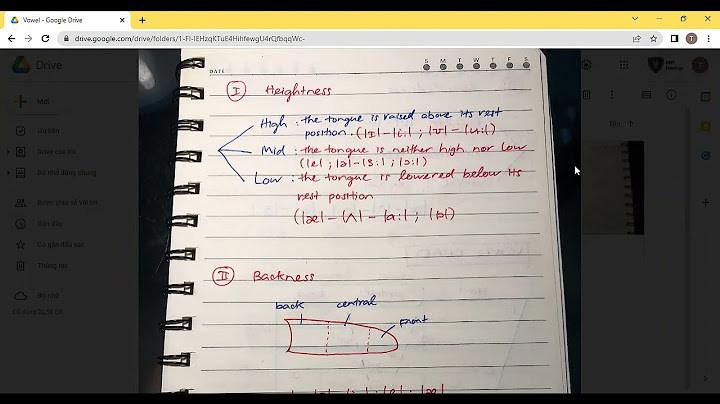 Vowel - Google Drive
drive.google.com/drive/folders/1-FI-IEHzqKTuE4HihfewgU4rQfbqqWc-
Drive
Mới
Ưu tiên
Bộ nhớ dùng chung
Được chia sẻ với tôi
Gần đây
Có gắn dấu sao
Thùng rác
Bộ nhớ
Tên
DATE
S M T W T F S
I Heightness
High : the tongue is raised above its rest
position. (|ɪ| - |i:| ; |ʊ| - |u:|)
Mid : the tongue is neither high nor low
(|e| ; |ə| - |ɜ:| ; |ɔ:|)
Low : the tongue is lowered below its
rest position
(|æ| - |ʌ| - |a:| ; |ɒ|)
II Backness
back central
front